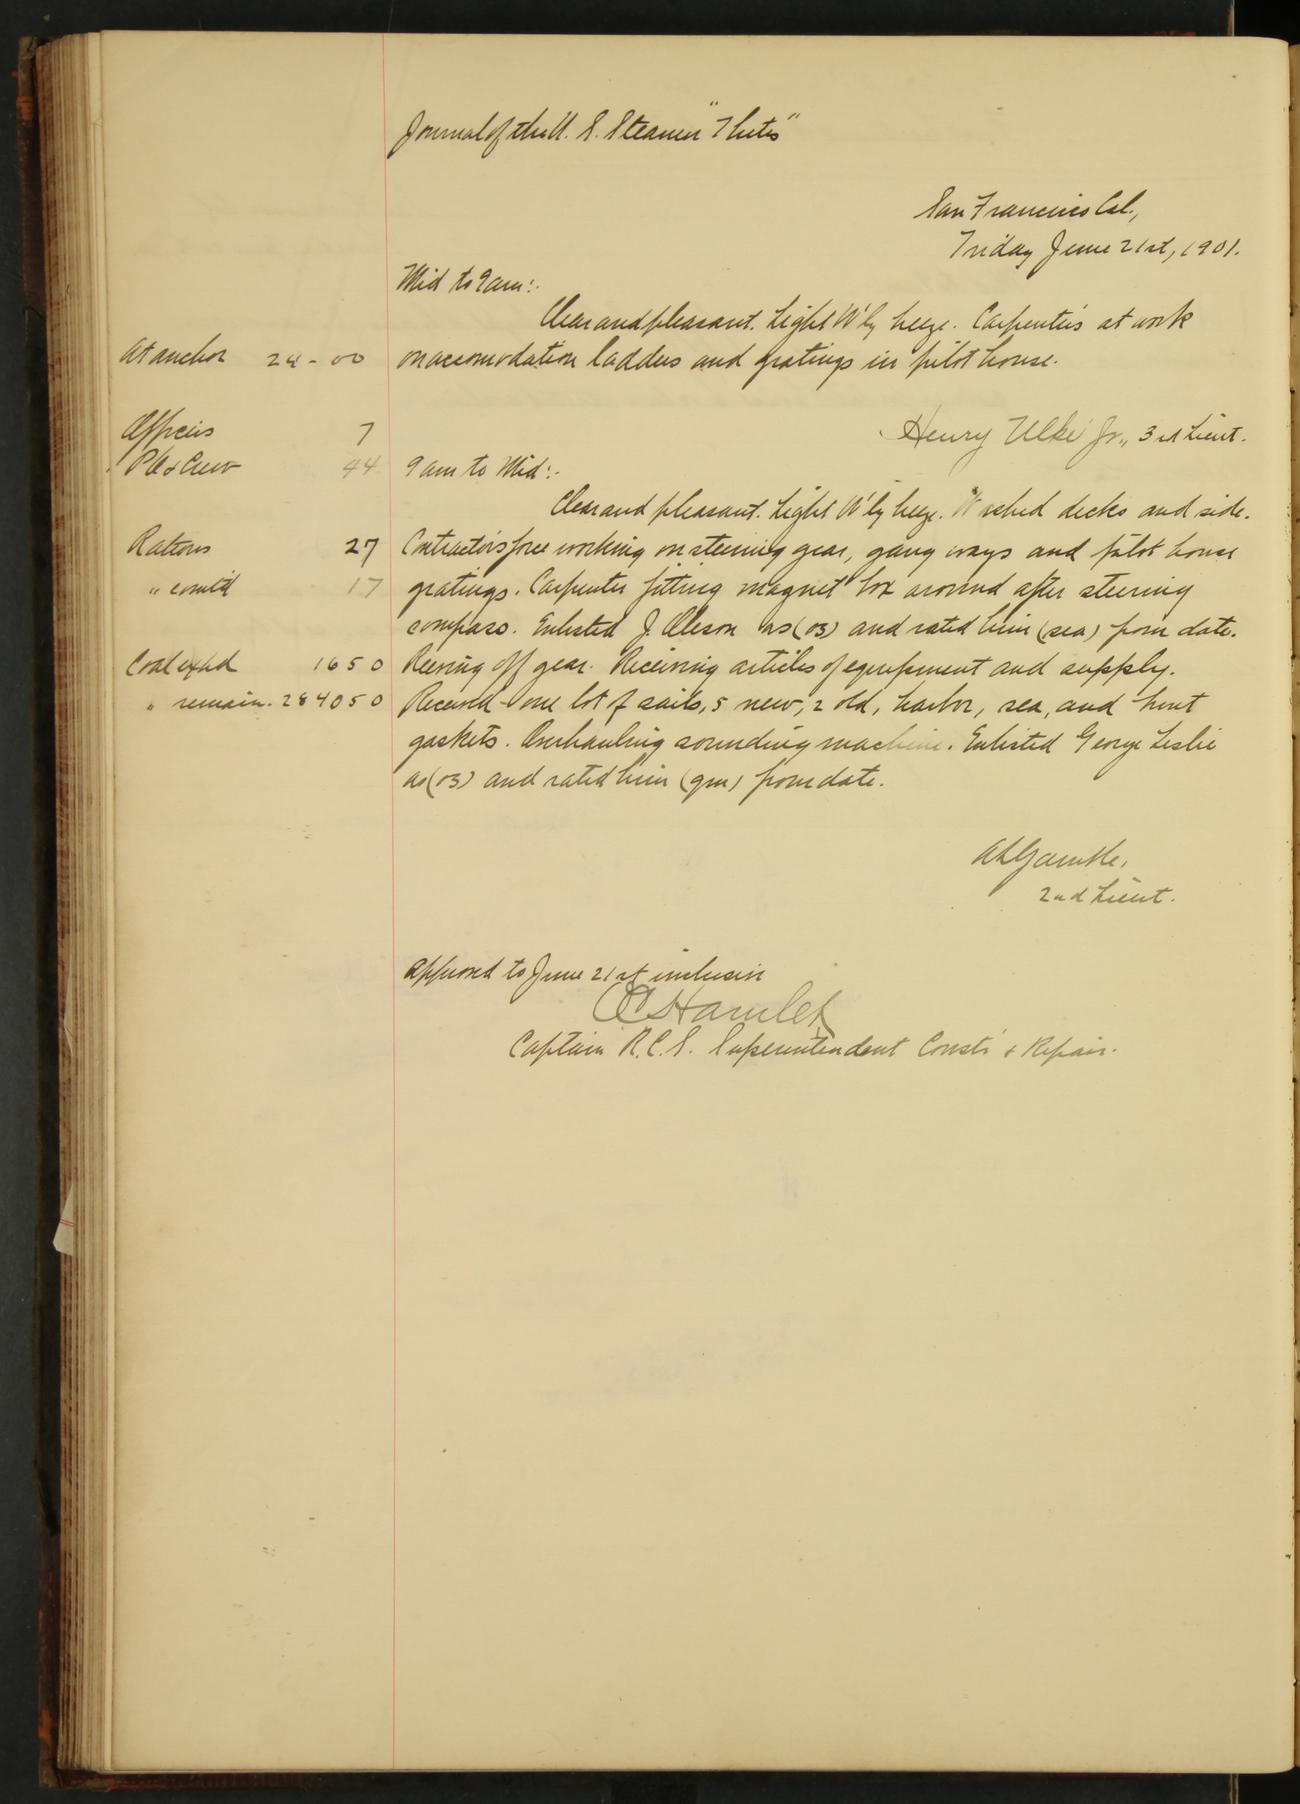 Journal of the U. S. Steamer "Thetis"
San Francisco Cal.,
Friday June 21st, 1901.
Mid to 9 am:-
Clear and pleasant. Light W'ly breeze. Carpenters at work
At anchor 24-00 on accomodation ladders and gratings in pilot house.
Officers 7
Henry Ulke Jr., 3rd Lieut.
P.O. & Crew 44
9 am to Mid:-
Clear and pleasant. Light W'ly breeze. Washed decks and side.
Rations 27 Contractors force working on steering gear, gang ways and pilot house
" com'td 17 gratings. Carpenter fitting magnet box around after steering
compass. Enlisted J. Oleson as (03) and rated him (sea) from date.
Coal expd 1650 Reeving off gear. Receiving articles of equipment and supply.
" remain. 284050 Received one lot of sails, 5 new, 2 old, harbor, sea, and bunt
gaskets. Overhauling sounding machine. Enlisted George Leslie
as (03) and rated him (qm) from date.
A L Gamble,
2nd Lieut.
Approved to June 21st inclusive
O C Hamlet
Captain R.C.S. Superintendent Constr & Repair.